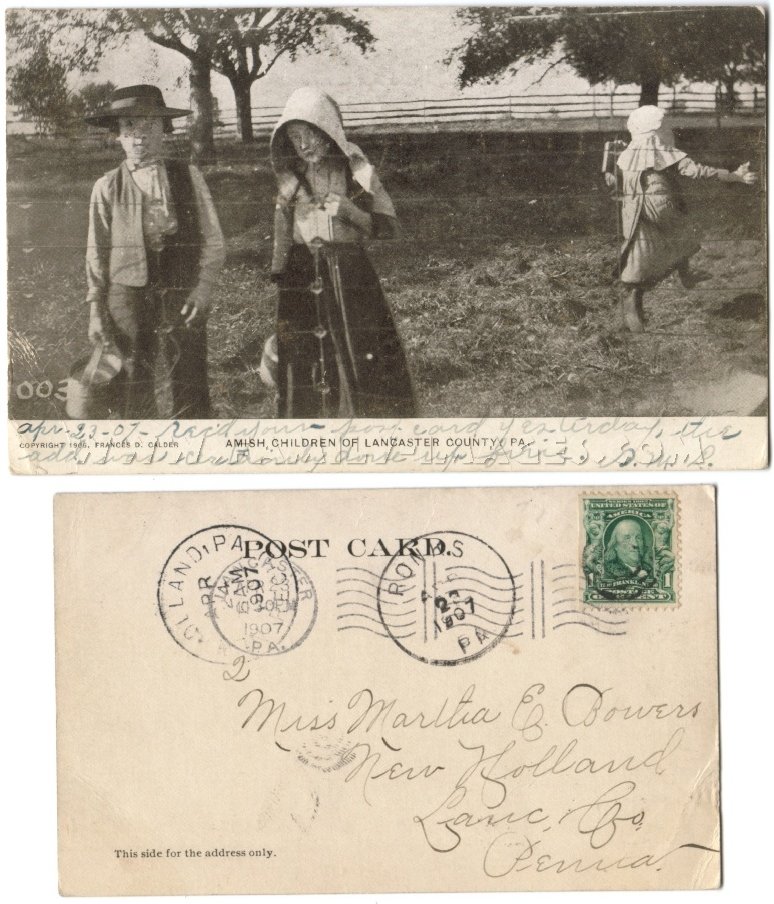 003
apr-23-07- Rec'd your post card yesterday, the
COPYRIGHT 1906, FRANCES D. CALDER
AMISH CHILDREN OF LANCASTER COUNTY, PA.
POST CARD.
LAND, PA
APR
1907
LANCASTER
1907
PA.
RONKS
23
1907
PA
UNITED STATES OF
AMERICA
1
1
POSTAGE
ONE CENT
2
Miss Martha E. Bowers
New Holland
Lanc, Co.
Penna.
This side for the address only.